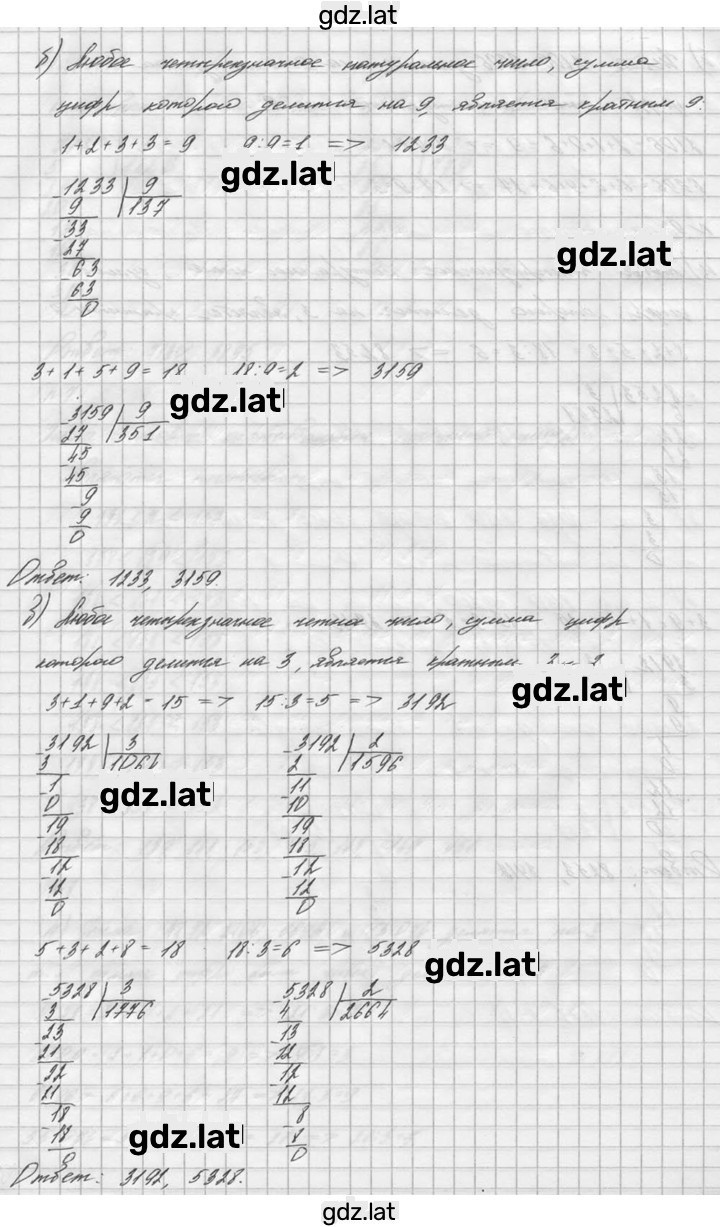 gdz.lat
б) Любое четырехзначное натуральное число, сумма
цифр которого делится на 9, является кратным 9.
1+2+3+3=9 9:9=1 => 1233
gdz.lat
1233 9
9 137
33
27
63
63
0
gdz.lat
3+1+5+9=18 18:9=2 => 3159
gdz.lat
3159 9
27 351
45
45
9
9
0
Ответ: 1233, 3159.
в) Любое четырехзначное четное число, сумма цифр
которого делится на 3, является кратным
gdz.lat
3+1+9+2=15 => 15:3=5 => 3192
3192 3
3 1064
1
0
19
18
12
12
0
gdz.lat
3192 2
2 1596
11
10
19
18
12
12
0
5+3+2+8=18 18:3=6 => 5328
gdz.lat
5328 3
3 1776
23
21
22
21
18
18
0
5328 2
4 2664
13
12
12
12
8
8
0
gdz.lat
Ответ: 3192, 5328.
gdz.lat